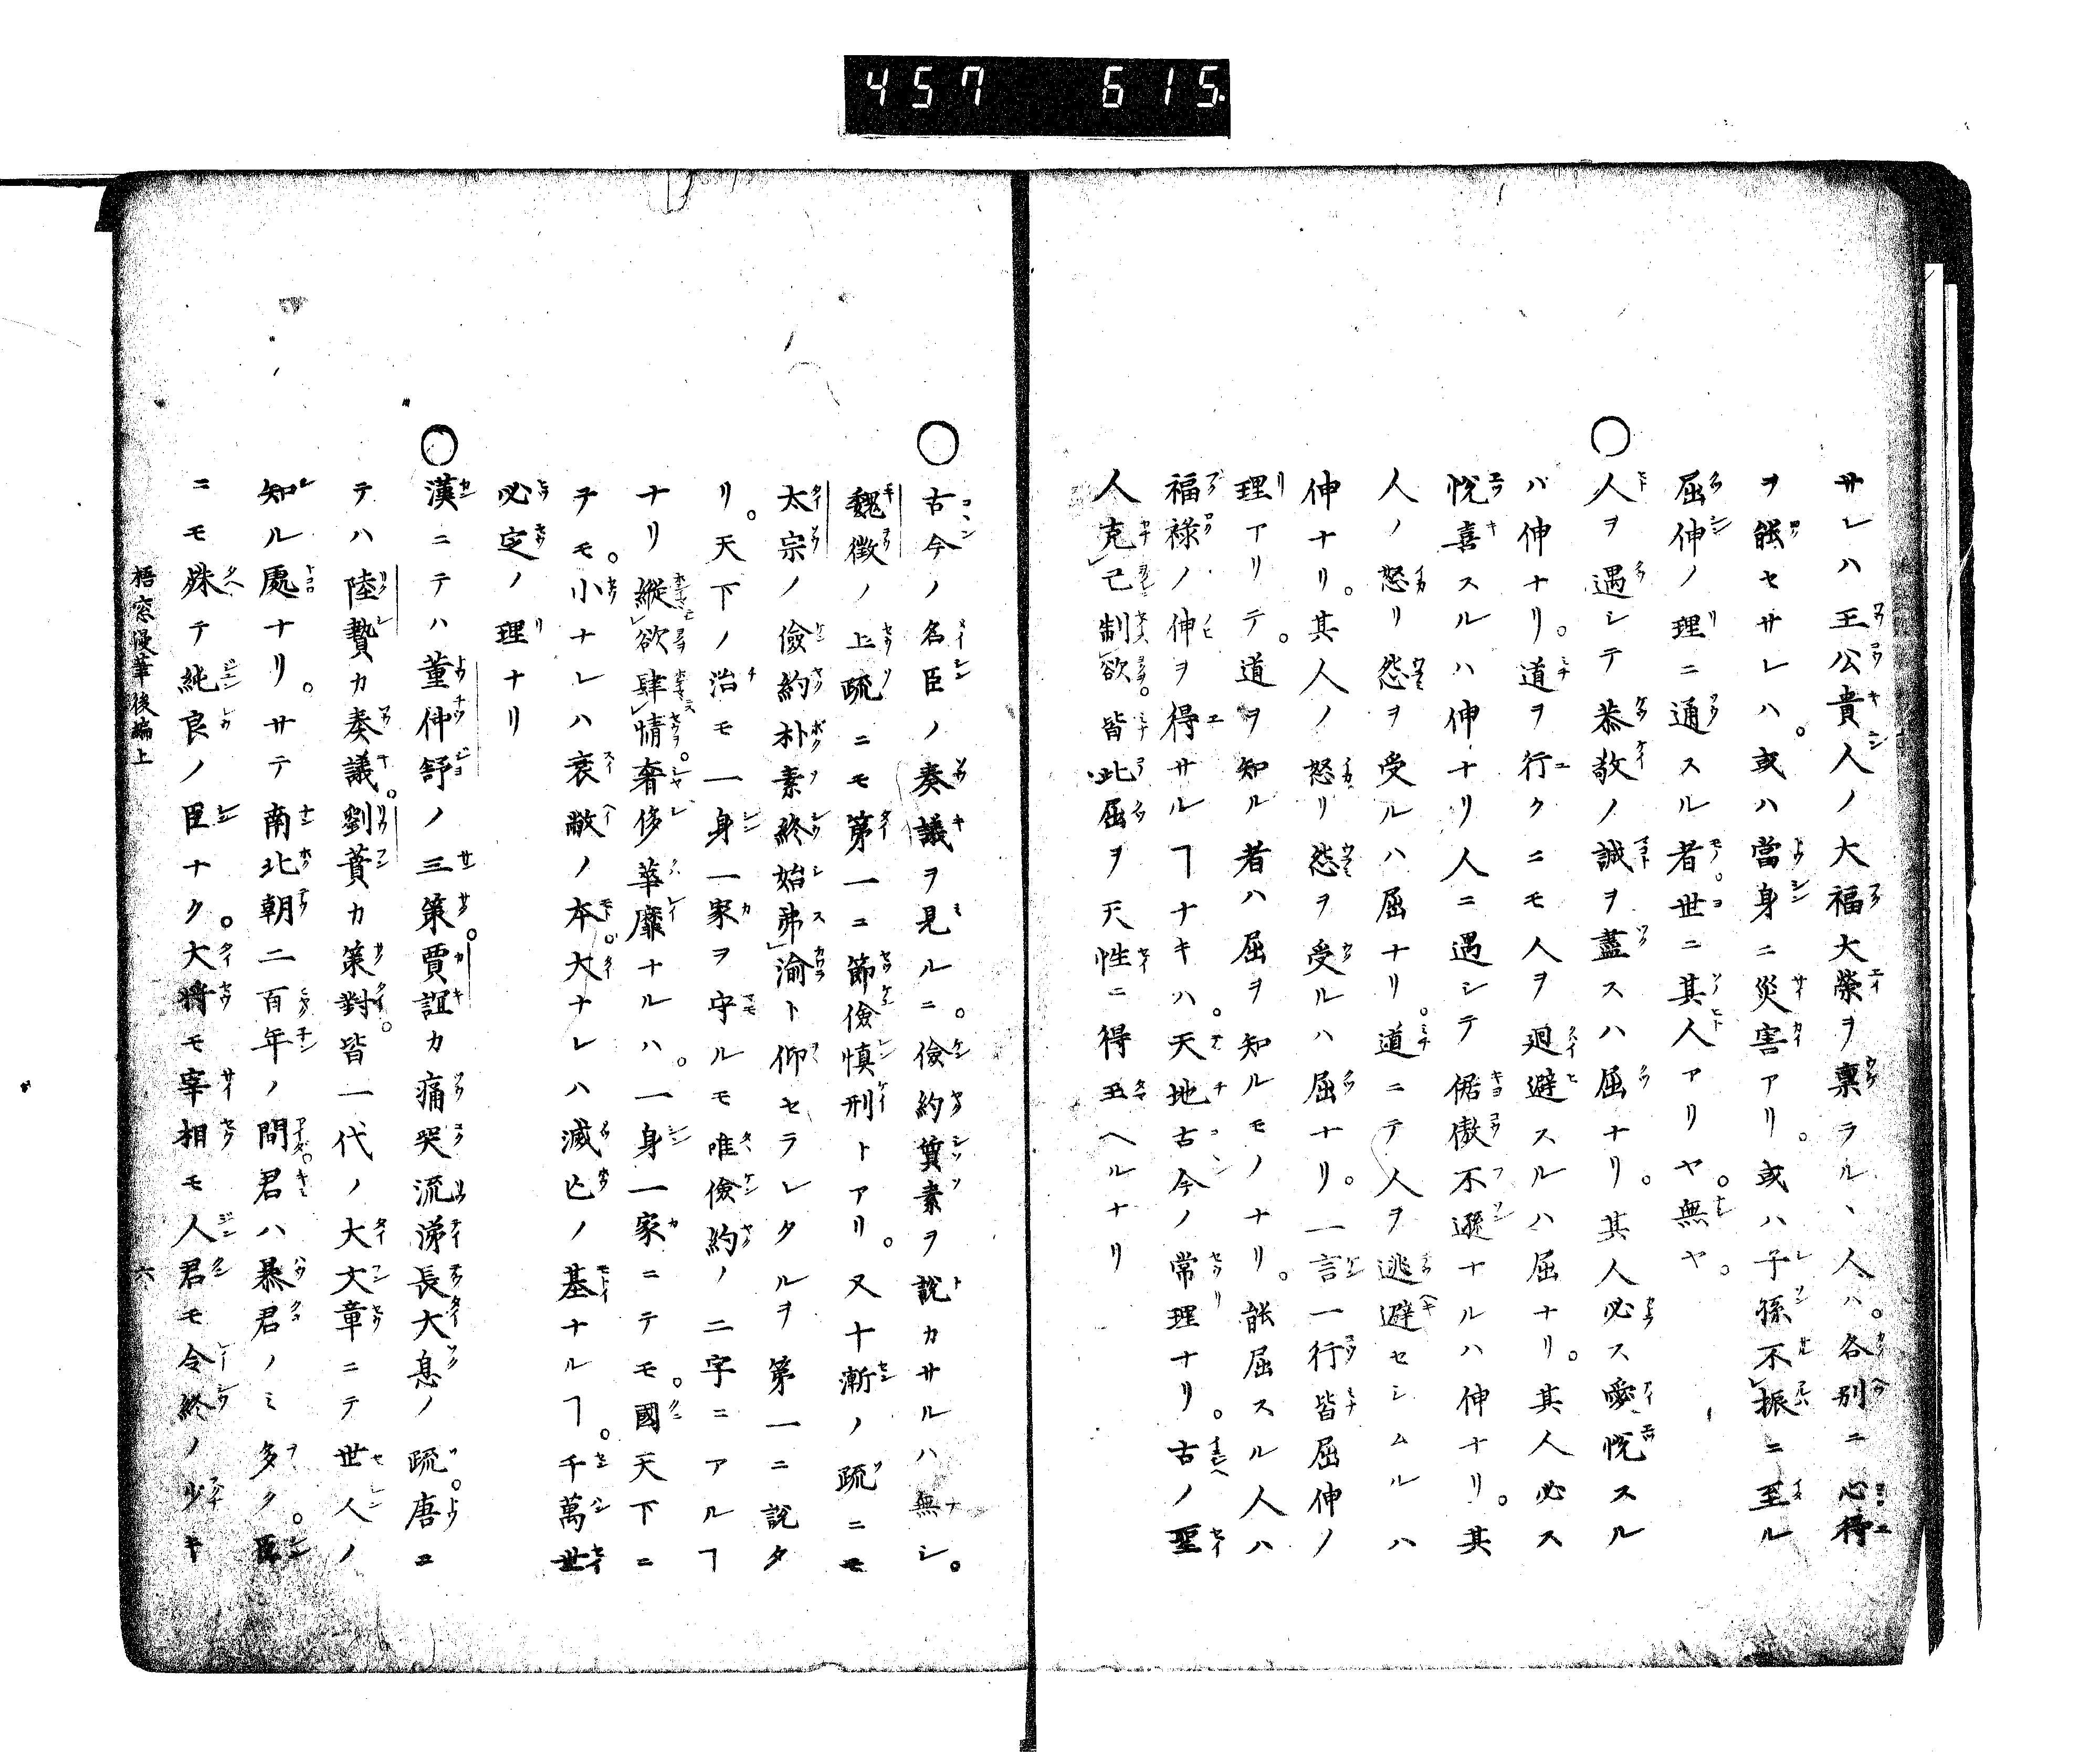 457 615
サレハ王公貴人ノ大福大榮ヲ稟ラル、人ハ。各別ニ心得
ヲ能セサレハ。或ハ當身ニ災害アリ。或ハ子孫不振ニ至ル
屈伸ノ理ニ通スル者。世ニ其人アリヤ。無ヤ。
〇人ヲ遇シテ恭敬ノ誠ヲ盡スハ屈ナリ。其人必ス愛悅スル
バ伸ナリ。道ヲ行クニモ人ヲ廻避スルハ屈ナリ。其人必ス
悅喜スルハ伸ナリ人ニ遇シテ倨傲不遜ナルハ伸ナリ。其
人ノ怒リ怨ヲ受ルハ屈ナリ。道ニテ人ヲ逃避セシムルハ
伸ナリ。其人ノ怒リ怨ヲ受ルハ屈ナリ。一言一行皆屈伸ノ
理アリテ。道ヲ知ル者ハ屈ヲ知ルモノナリ。能屈スル人ハ
福禄ノ伸ヲ得サルヿナキハ。天地古今ノ常理ナリ。古ノ聖
人克己制欲。皆此屈ヲ天性ニ得玉ヘルナリ
〇古今ノ名臣ノ奏議ヲ見ルニ。儉約質素ヲ說カサルハ無シ。
魏徴ノ上疏ニモ第一ニ節儉慎刑トアリ。又十漸ノ疏ニモ
太宗ノ儉約朴素終始弗渝ト仰セラレタルヲ第一ニ說タ
リ。天下ノ治モ一身一家ヲ守ルモ唯儉約ノ二字ニアルヿ
ナリ縱欲肆情。奢侈華靡ナルハ。一身一家ニテモ。國天下ニ
テモ。小ナレハ衰敝ノ本。大ナレハ滅亡ノ基ナルヿ。千萬世
必定ノ理ナリ
〇漢ニテハ董仲舒ノ三策。賈誼カ痛哭流涕長大息ノ疏。唐ニ
テハ陸贄カ奏議。劉蕡カ策對。皆一代ノ大文章ニテ世人ノ
知ル處ナリ。サテ南北朝二百年ノ間。君ハ暴君ノミ多ク。臣
ニモ殊テ純良ノ臣ナク。大將モ宰相モ人君モ令終ノ少キ
梧窓漫筆後編上 六